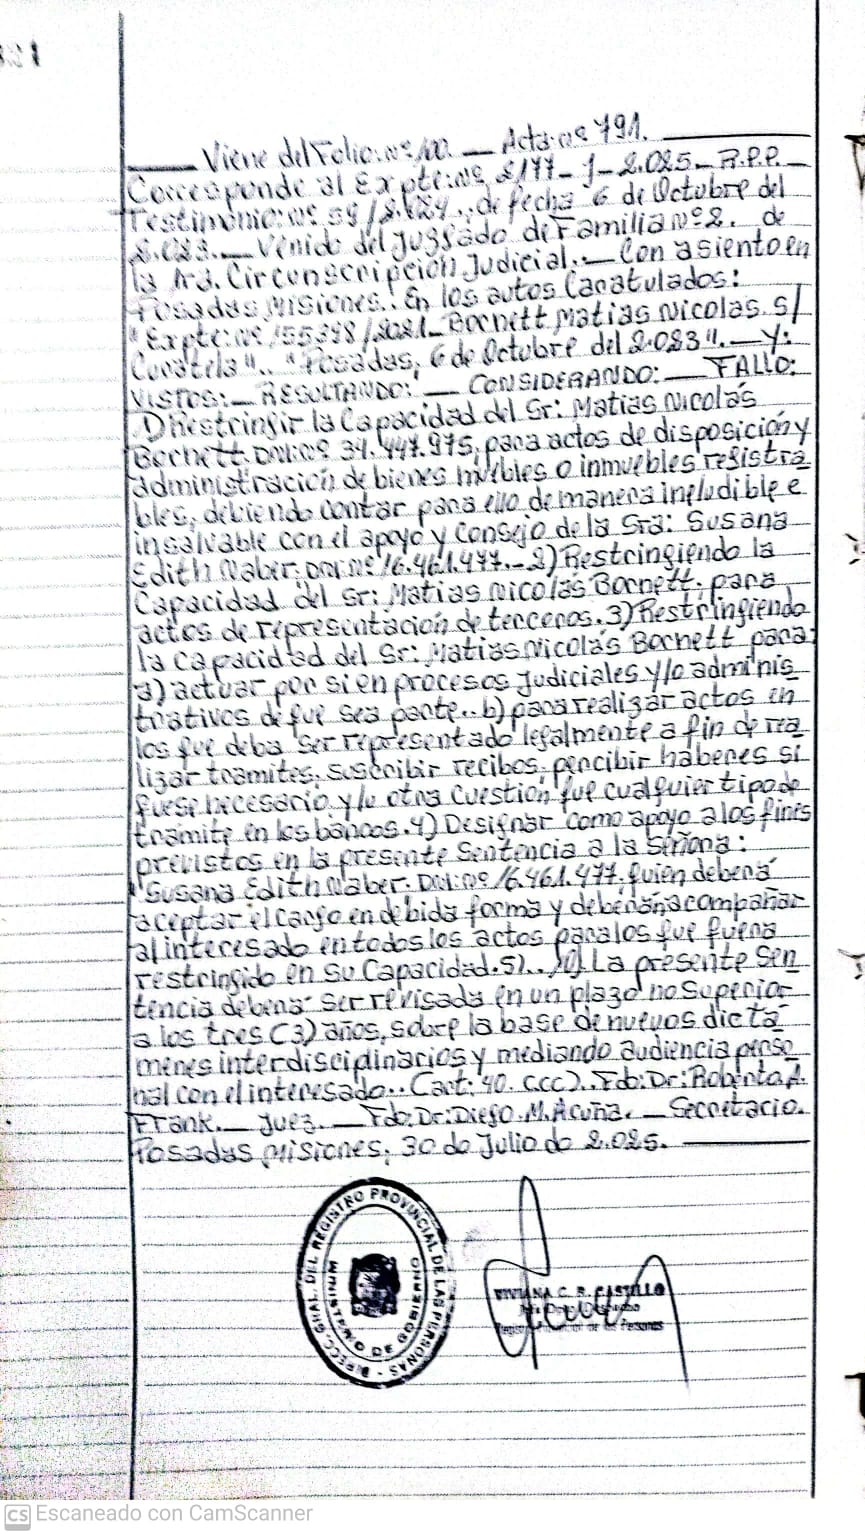 Viene del Folio: nº 100. — Acta: nº 791.
Corresponde al Expte: nº 2177-J-2.025- R.P.P.-
Testimonio: nº 59/2.024., de fecha 6 de Octubre del
2.023.— Venido del Juzgado de Familia nº 2. de
la 1ra. Circunscripción Judicial.— Con asiento en
Posadas Misiones. En los autos Caratulados:
"Expte: nº 155398/2021- Bochett Matias Nicolas. s/
Curatela".. "Posadas, 6 de Octubre del 2.023".— Y:
VISTOS:— RESULTANDO:— CONSIDERANDO:— FALLO:
1) Restringir la Capacidad del Sr: Matias Nicolás
Bochett. DNI: nº 34.447.975, para actos de disposición y
administración de bienes muebles o inmuebles registra
bles, debiendo contar para ello de manera ineludible e
insalvable con el apoyo y Consejo de la Sra: Susana
Edith Naber. DNI: nº 16.461.477.- 2) Restringiendo la
Capacidad del Sr: Matias Nicolás Bochett; para
actos de representación de terceros. 3) Restringiendo
la Capacidad del Sr: Matias Nicolás Bochett para:
a) actuar por si en procesos Judiciales y/o adminis
trativos de que sea parte.. b) para realizar actos en
los que deba ser representado legalmente a fin de rea
lizar tramites, suscribir recibos, percibir haberes si
fuese necesario y/u otra Cuestión que cualquier tipo de
tramite en los bancos. 4) Designar como apoyo a los fines
previstos en la presente Sentencia a la Señora:
Susana Edith Naber. DNI: nº 16.461.477, quien deberá
aceptar el cargo en debida forma y deberá acompañar
al interesado en todos los actos para los que fuera
restringido en su Capacidad. 5).. 10) La presente Sen
tencia deberá ser revisada en un plazo no Superior
a los tres (3) años, sobre la base de nuevos dictá
menes interdisciplinarios y mediando audiencia perso
nal con el interesado.. (art: 40. CCC).. Fdo: Dr: Roberto A.
Frank.— Juez.— Fdo: Dr: Diego. M. Acuña.— Secretario.
Posadas Misiones, 30 de Julio de 2.025.
DIRECC. GRAL. DEL REGISTRO PROVINCIAL DE LAS PERSONAS
MINISTERIO DE GOBIERNO
VIVIANA C. R. CASTILLO
Registro Provincial de las Personas
CS Escaneado con CamScanner